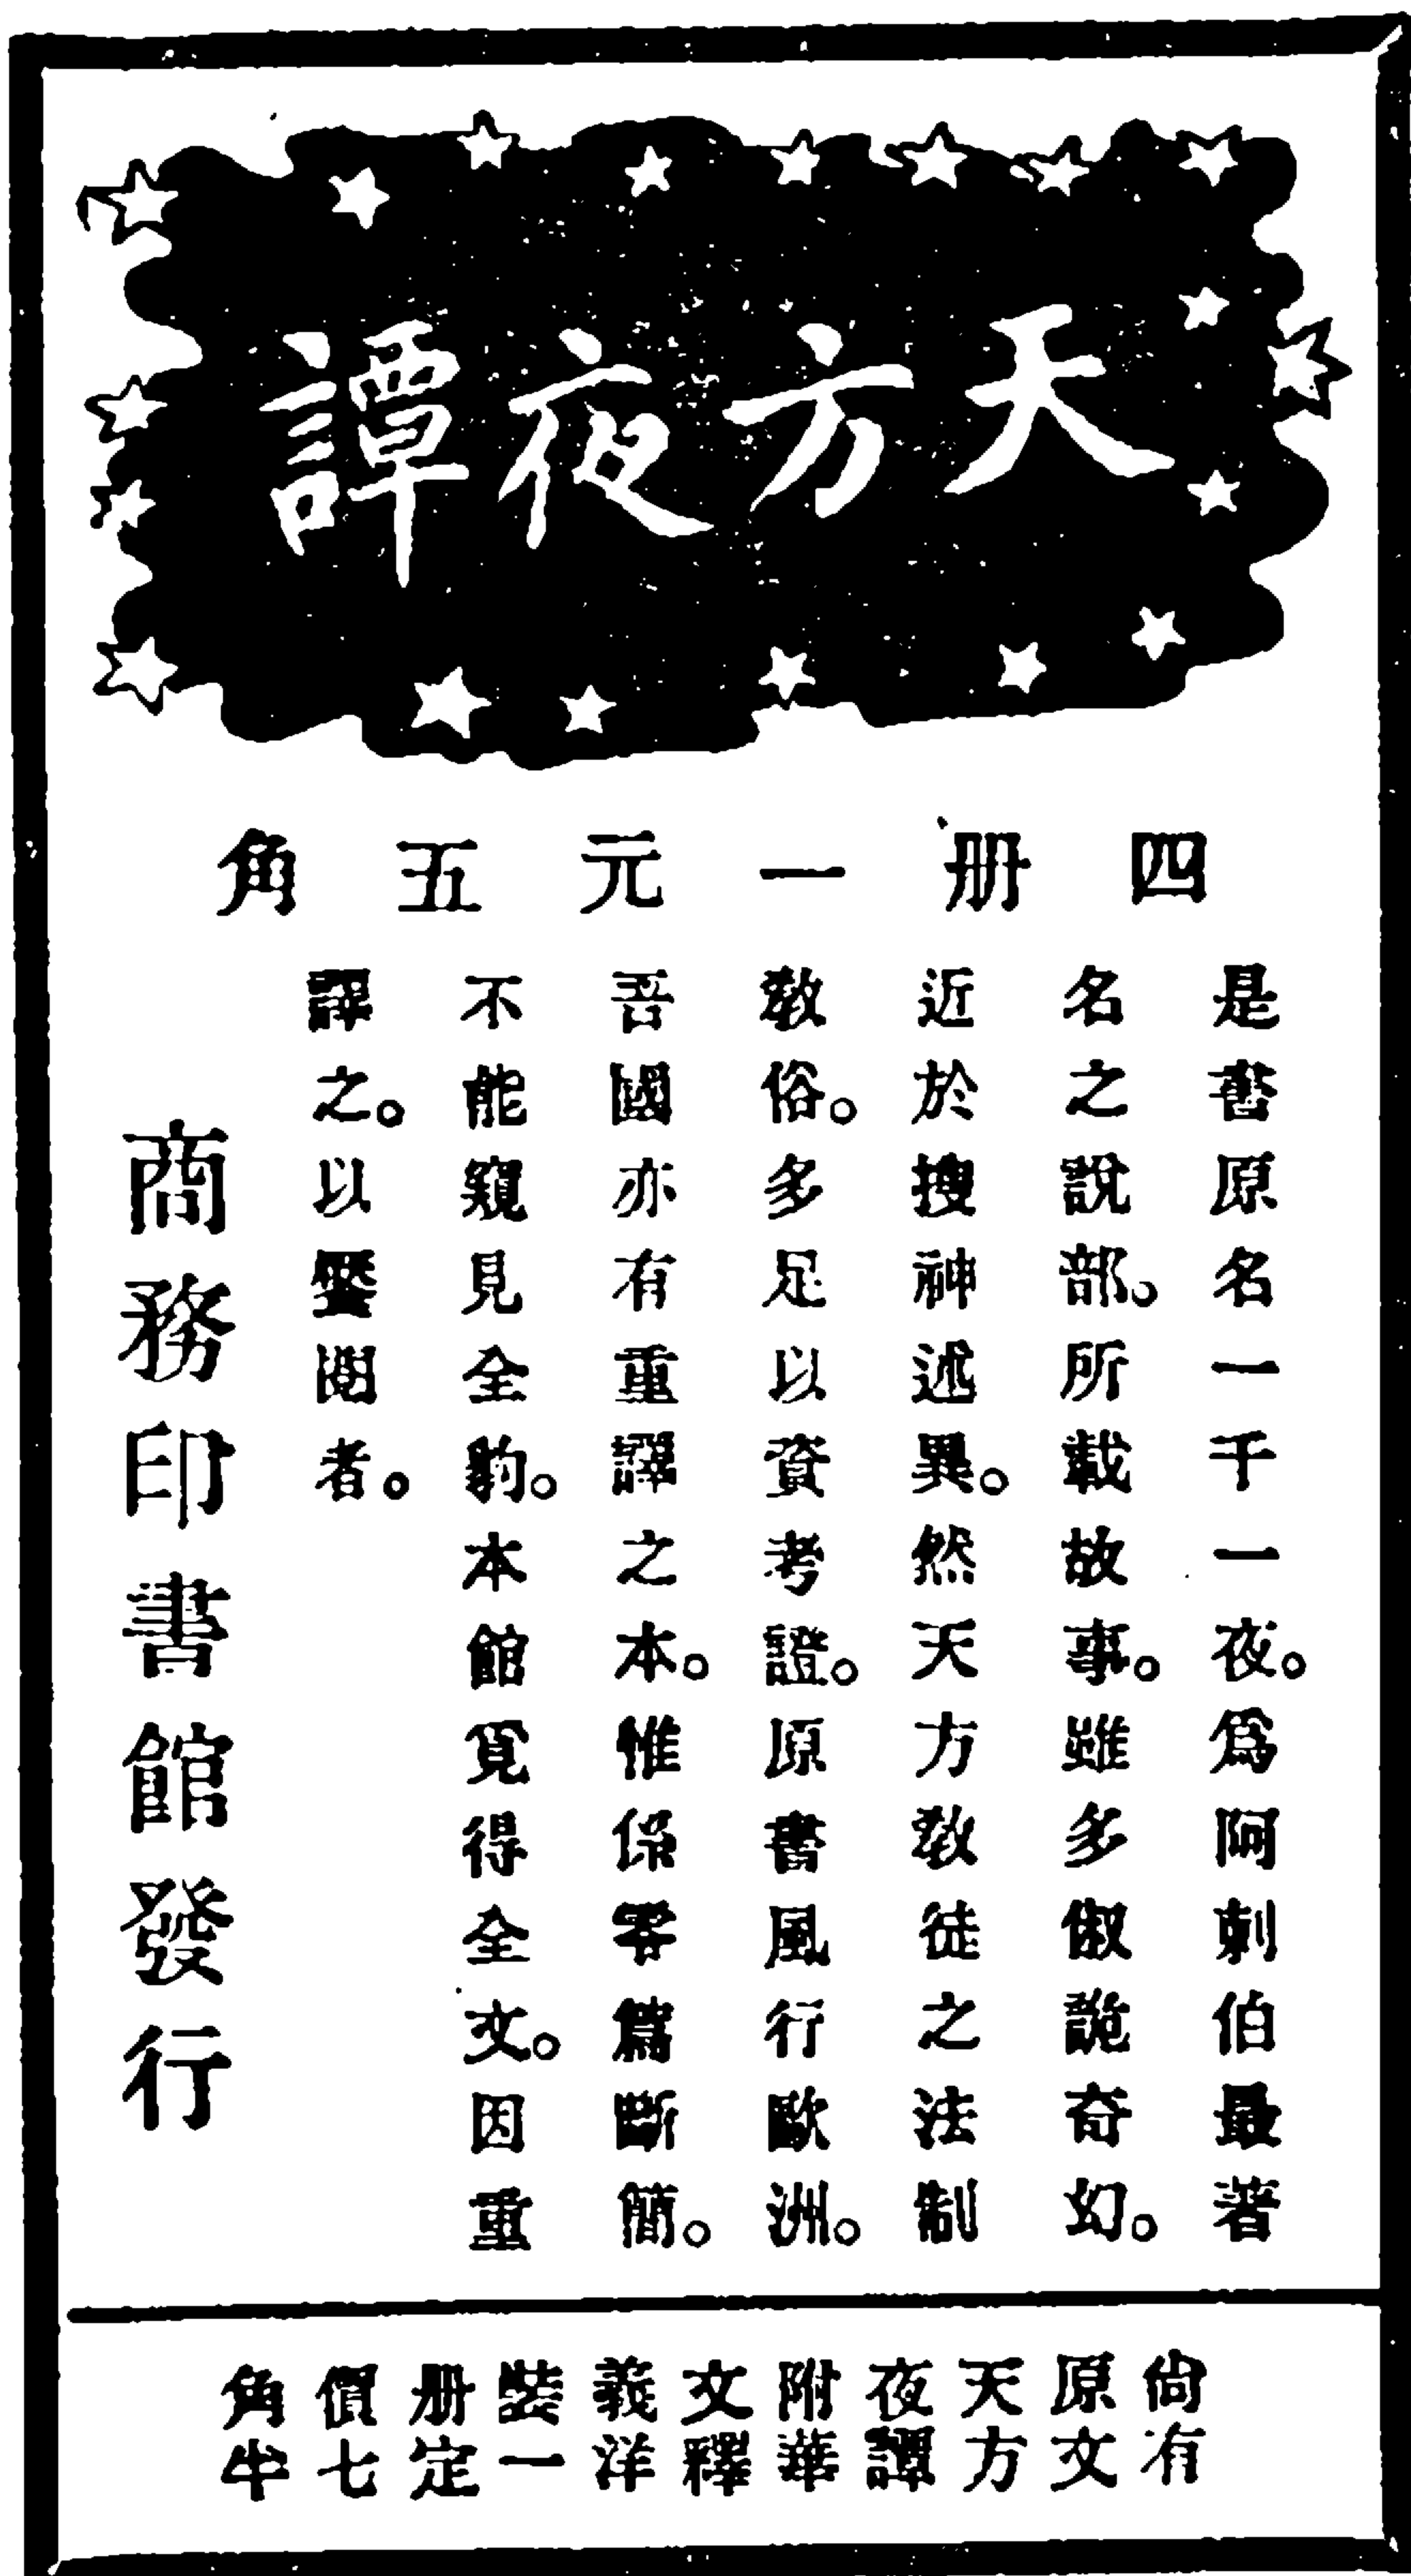 天方夜譚
四册一元五角
是書原名一千一夜。爲阿剌伯最著
名之說部。所載故事。雖多俶詭奇幻。
近於搜神述異。然天方敎徒之法制
敎俗。多足以資考證。原書風行歐洲。
吾國亦有重譯之本。惟係零篇斷簡。
不能窺見全豹。本館覓得全文。因重
譯之。以饜閱者。
商務印書館發行
尙有
原文
天方
夜譚
附華
文釋
義洋
裝一
册定
價七
角半